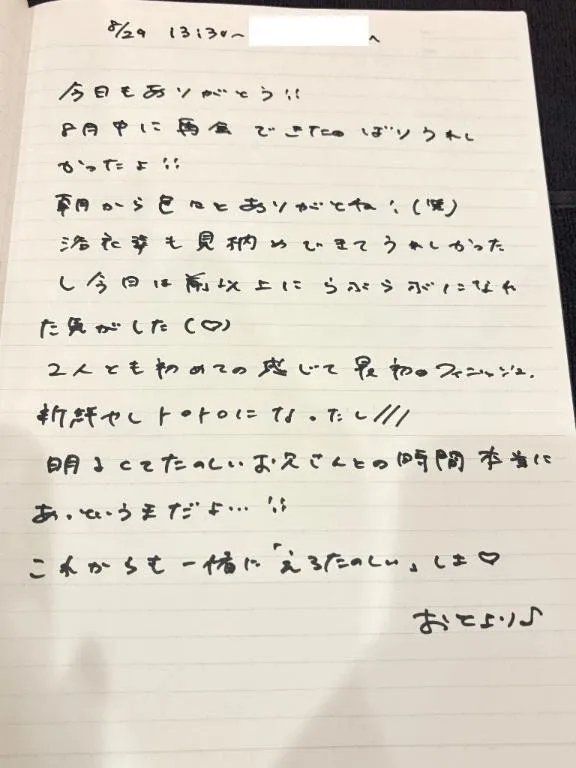 8/29 13:30〜 へ
今日もありがとう!!
8月中に再会できたのばりうれし
かったよ!!
朝から色々とありがとね!(笑)
浴衣姿も見納めできてうれしかった
し今日は前以上にらぶらぶになれ
た気がした(♡)
2人とも初めての感じで最初のフィニッシュ、
新鮮やしトロトロになったし///
明るくてたのしいお兄さんとの時間本当に
あっというまだよ…!!
これからも一緒に「えろたのしい」しよ♡
おとより♪